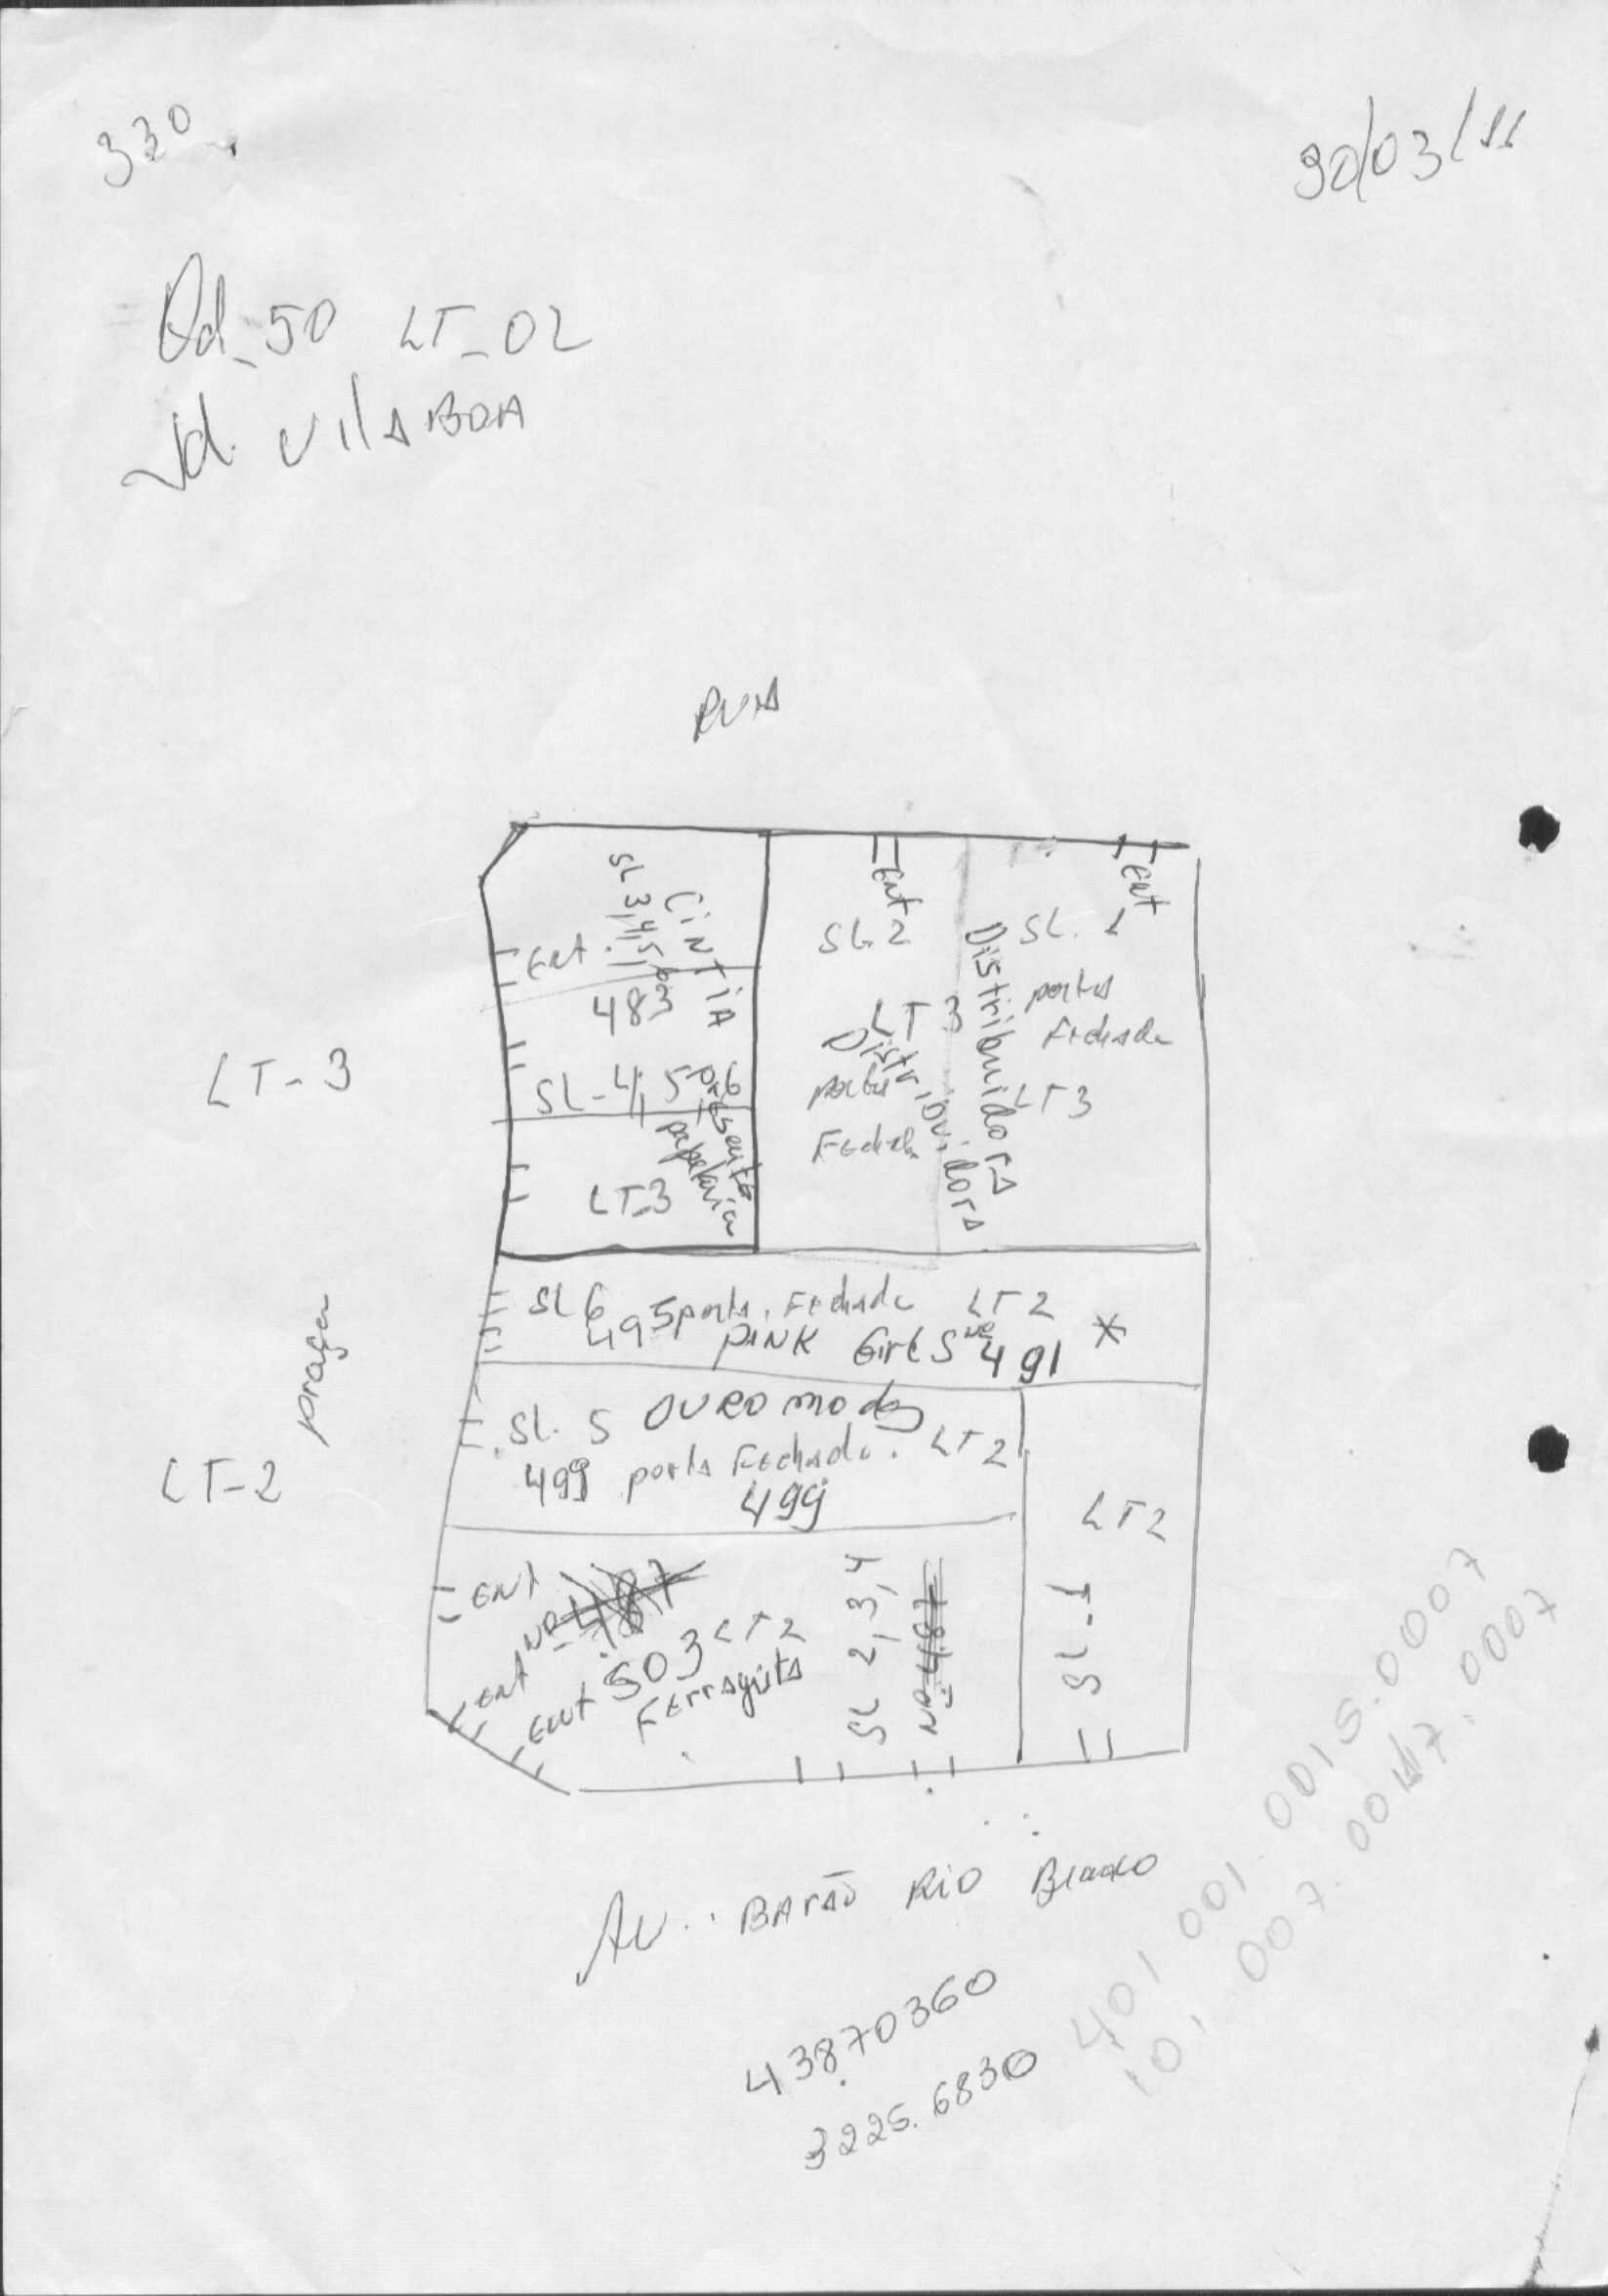 330
30/03/11
Qd_50 LT_02
Jd. VILA BOA
RUA
SL 3,4,5,6
CINTIA
Ent.
483
SL-4, 5, 6
presente
papelaria
LT-3
Ent
SL 2
LT 3
Distribuidora
porta
Fechada
Ent
SL. 1
Distribuidora
porta
Fechada
LT3
LT-3
praça
SL 6 porta. Fechada LT 2
495 PINK Girls nº 491 *
SL. 5 OURO modas
499 porta Fechada. LT 2
499
LT-2
LT 2
SL-1
Ent
Nº 487
Ent 503 LT 2
Ent Ferragista
SL 2,3,4
Nº 487
Av. BARÃO RIO Branco
43870360
3225.6830
401.001.0015.0007